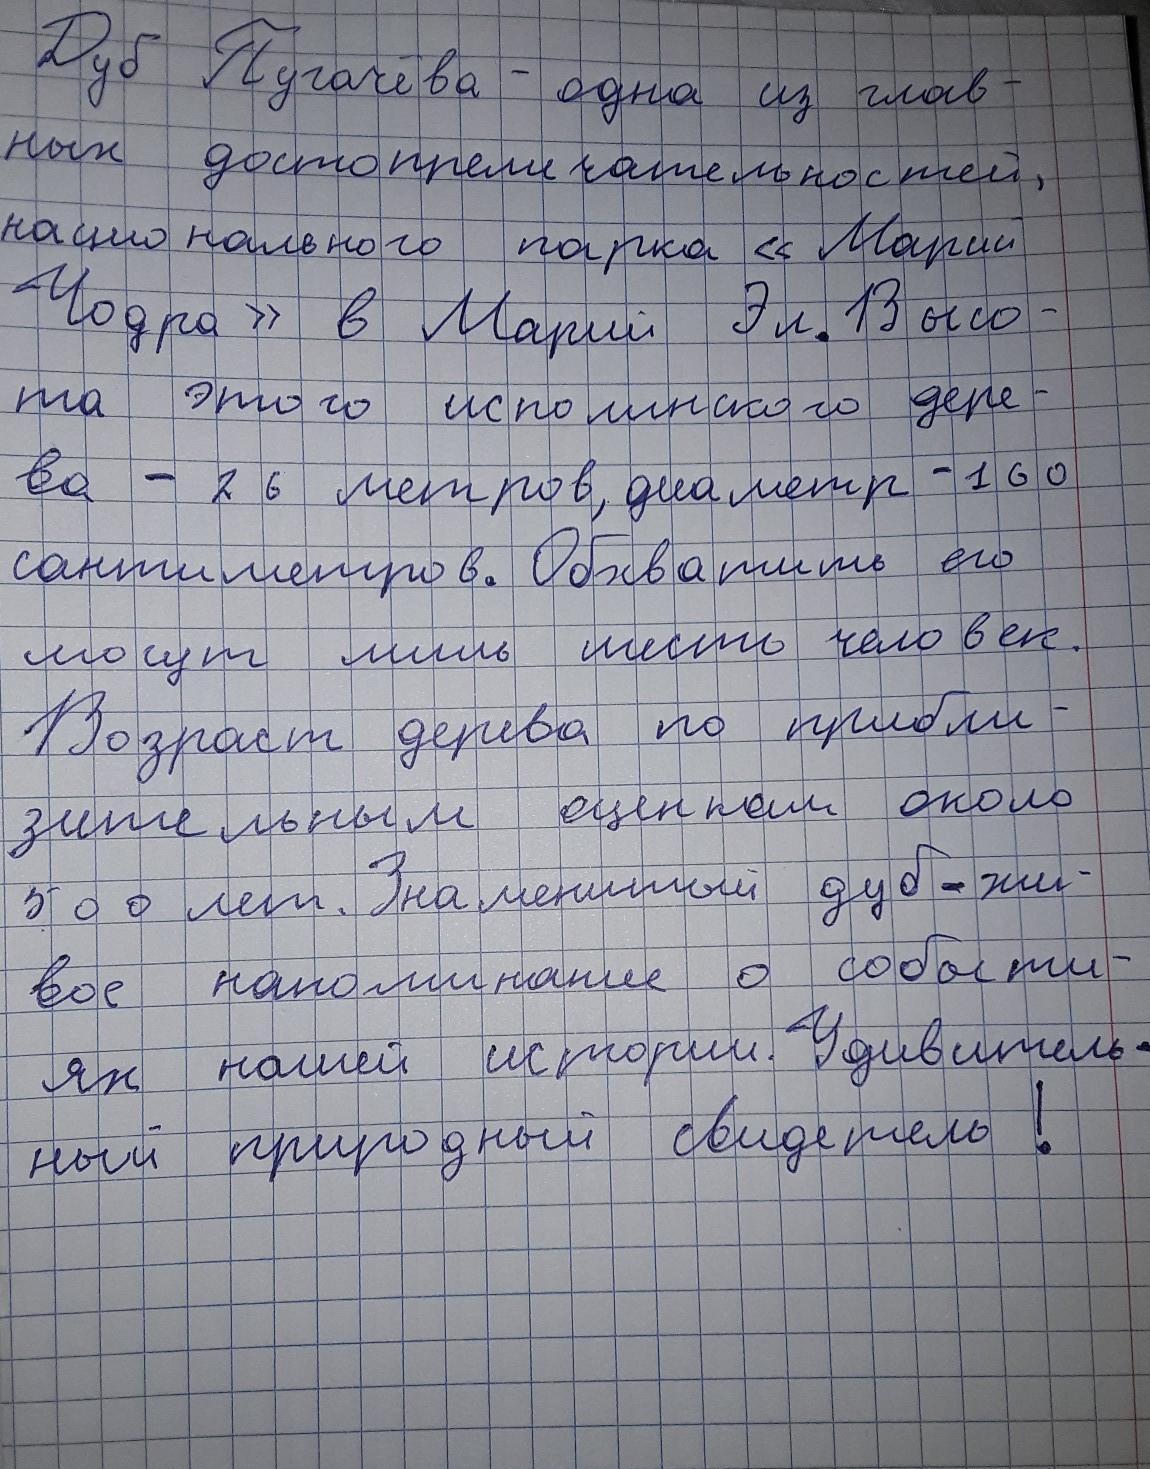 Дуб Пугачёва - одна из глав-
ных достопримечательностей,
национального парка « Марий
Чодра» в Марий Эл. Высо-
та этого исполинского дере-
ва - 26 метров, диаметр - 160
сантиметров. Обхватить его
могут лишь шесть человек.
Возраст дерева по прибли-
зительным оценкам около
500 лет. Знаменитый дуб - жи-
вое напоминание о событи-
ях нашей истории. Удивитель-
ный природный свидетель!